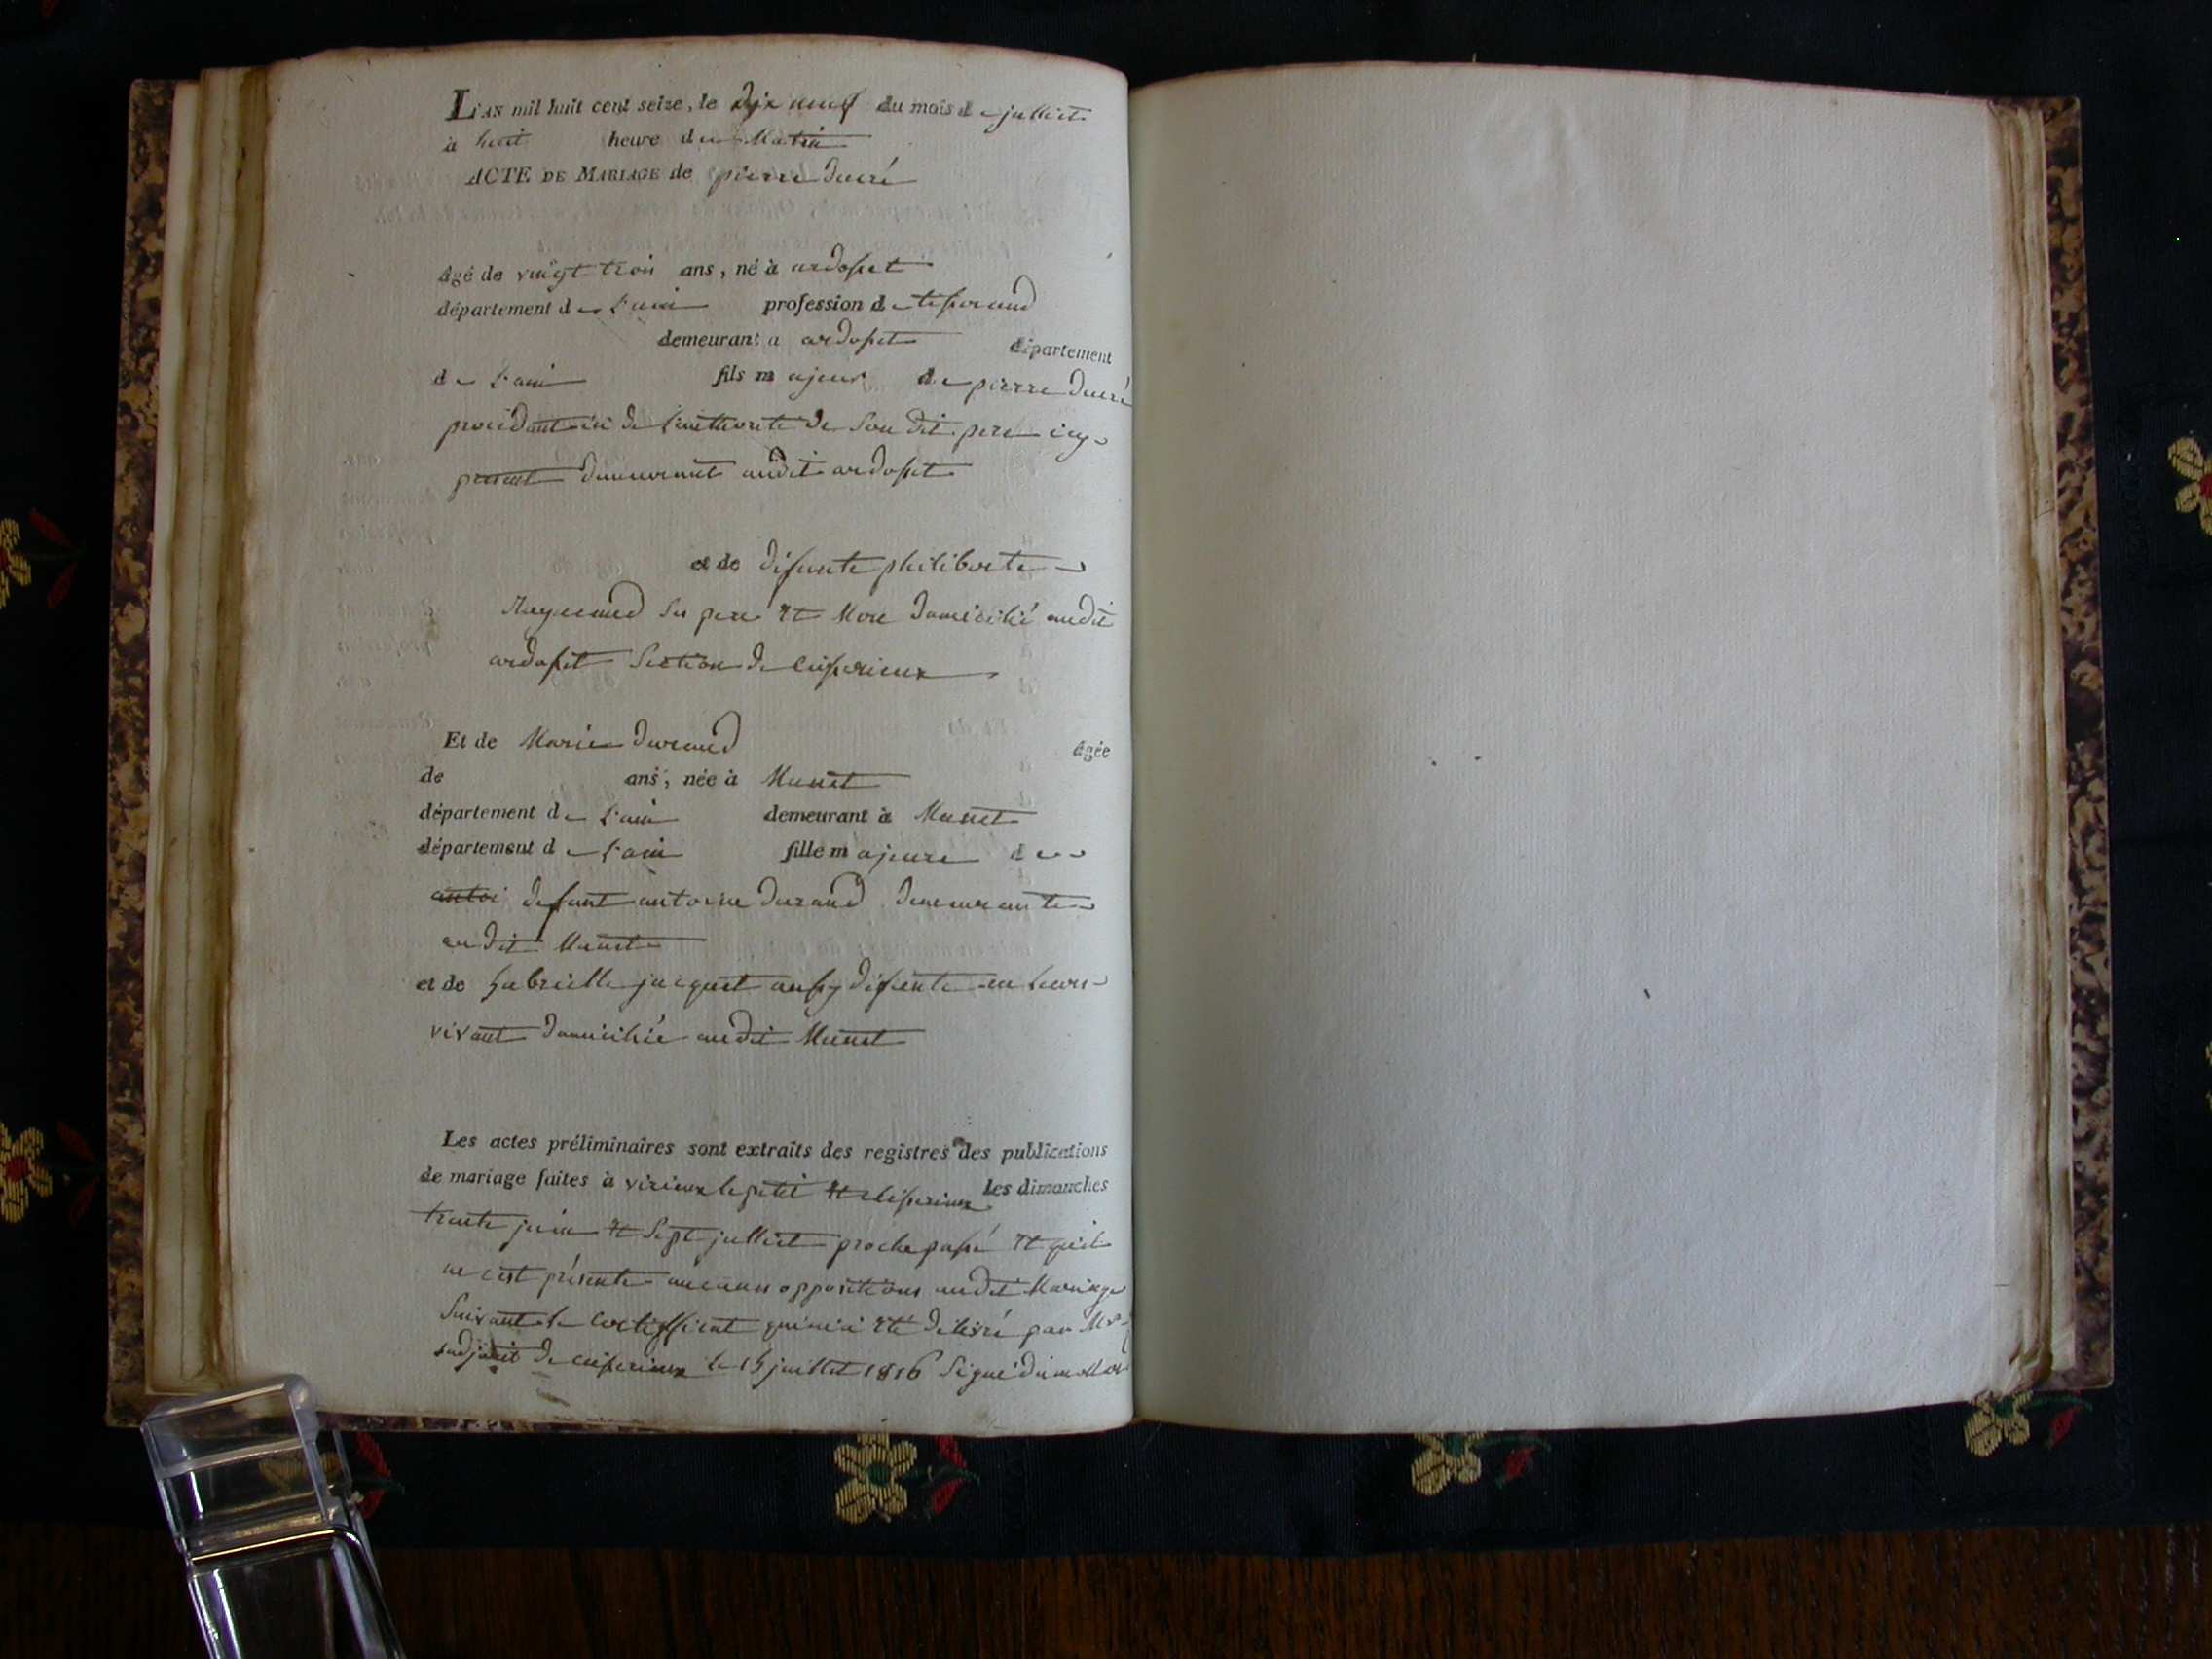 L'AN mil huit cent seize, le dix neuf du mois de julliet
à huit heure du Matin
ACTE DE MARIAGE de pierre ducré
âgé de vingt trois ans, né à ardosset
département de L'ain profession de tisserand
demeurant a ardosset département
de L'ain fils majeur de pierre ducré
procédant ici de l'authorité de son dit pere icy
present demeurant audit ardosset
et de defunte philiberte
ses pere et Mere domicilié audit
ardosset Section de cusserieux
Et de Marie durand âgée
de ans, née à Munet
département de L'ain demeurant à Munet
département de L'ain fille majeure de
antoi defunt antoine durand demeurante
au dit Munet
et de gabrielle jacquet aussy défunte en leurs
vivant domicilié audit Munet
Les actes préliminaires sont extraits des registres des publications
de mariage faites à virieux le petit et cusserieux les dimanches
trente juin et sept julliet proche passé et qu'il
ne c'est présenté aucunes oppositions audit Mariage
Suivant le certifficat qui m'a été delivré par Mr
l'adjoint de cusserieux le juillet 1816 Signé dumollar